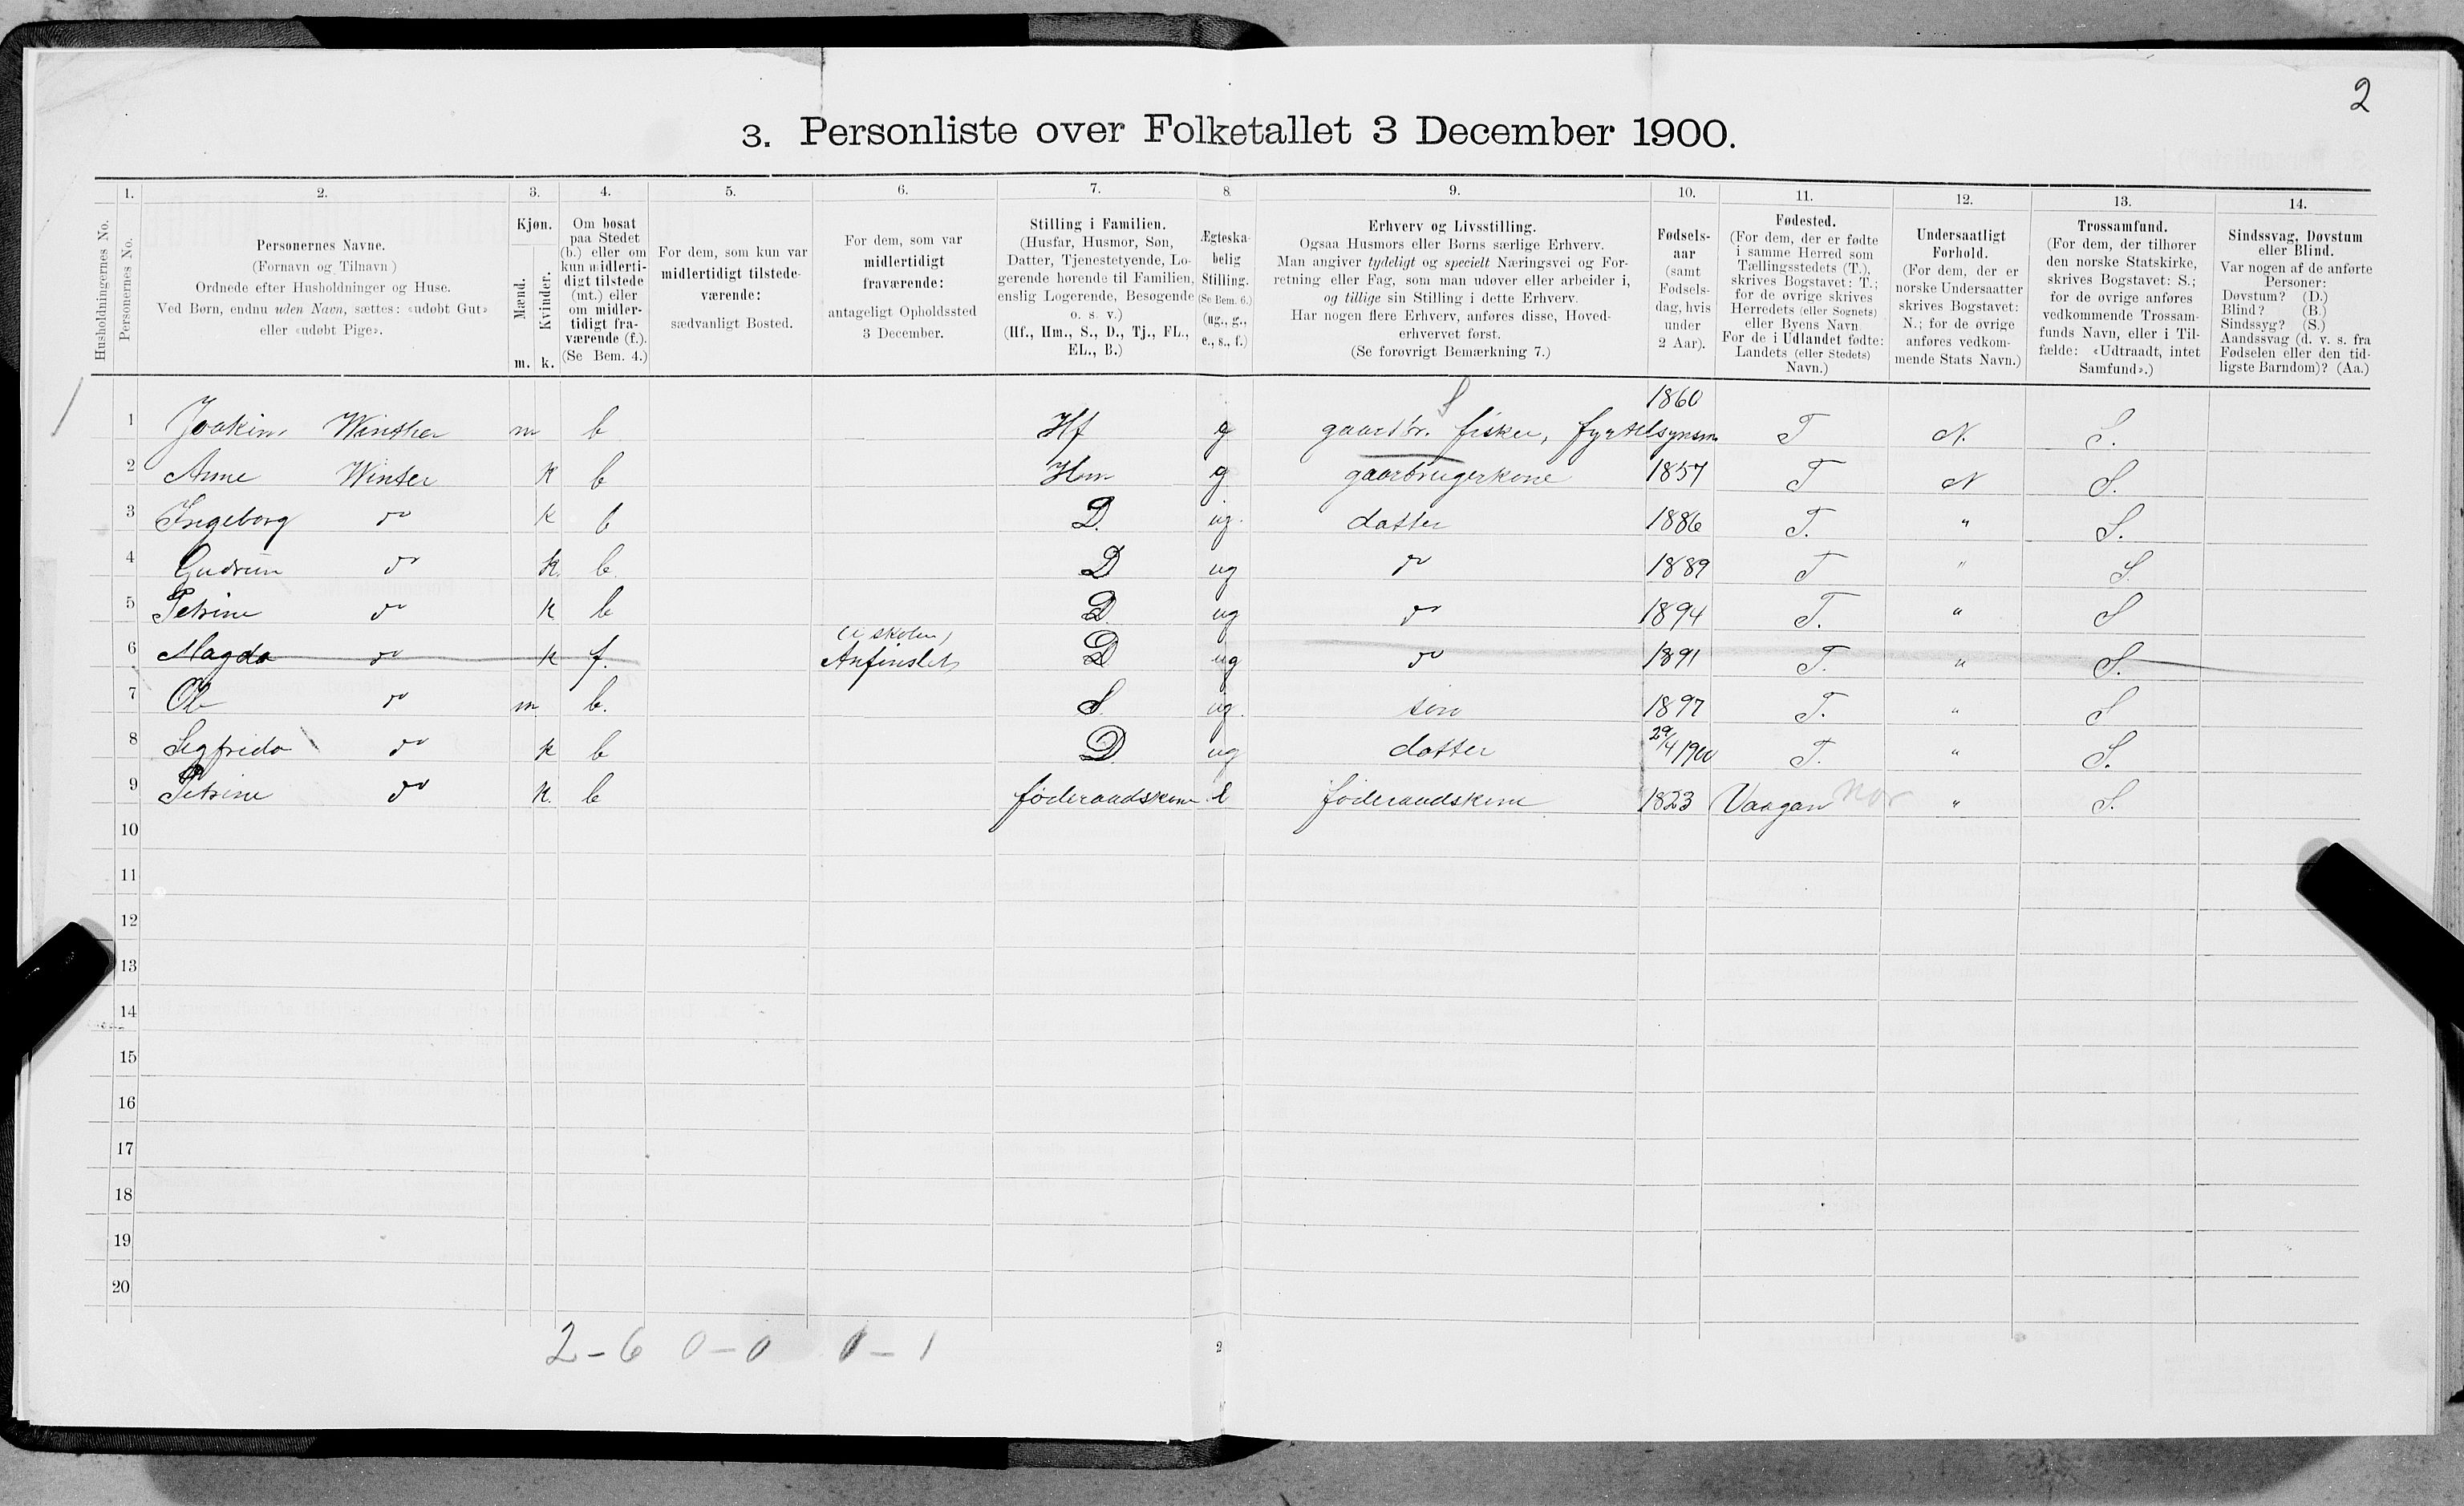 2
3. Personliste over Folketallet 3 December 1900.
1. 2. 3. 4. 5. 6. 7. 8. 9. 10. 11. 12. 13. 14.
Husholdningernes No.
Personernes No.
Personernes Navne.
(Fornavn og Tilnavn)
Ordnede efter Husholdninger og Huse.
Ved Børn, endnu uden Navn, sættes: «udøbt Gut»
eller «udøbt Pige».
Kjøn.
Mænd.
Kvinder.
m. k.
Om bosat
paa Stedet
(b.) eller om
kun midlerti-
digt tilstede
(mt.) eller
om midler-
tidigt fra-
værende (f.).
(Se Bem. 4.)
For dem, som kun var
midlertidigt tilstede-
værende:
sædvanligt Bosted.
For dem, som var
midlertidigt
fraværende:
antageligt Opholdssted
3 December.
Stilling i Familien.
(Husfar, Husmor, Søn,
Datter, Tjenestetyende, Lo-
gerende hørende til Familien,
enslig Logerende, Besøgende
o. s. v.)
(Hf., Hm., S., D., Tj., FL.,
EL., B.)
Ægteska-
belig
Stilling.
(Se Bem. 6.)
(ug., g.,
e., s., f.)
Erhverv og Livsstilling.
Ogsaa Husmors eller Børns særlige Erhverv.
Man angiver tydeligt og specielt Næringsvei og For-
retning eller Fag, som man udøver eller arbeider i,
og tillige sin Stilling i dette Erhverv.
Har nogen flere Erhverv, anføres disse, Hoved-
erhvervet først.
(Se forøvrigt Bemærkning 7.)
Fødsels-
aar
(samt
Fødsels-
dag, hvis
under
2 Aar).
Fødested.
(For dem, der er fødte
i samme Herred som
Tællingsstedets (T.),
skrives Bogstavet: T.;
for de øvrige skrives
Herredets (eller Sognets)
eller Byens Navn.
For de i Udlandet fødte:
Landets (eller Stedets)
Navn.)
Undersaatligt
Forhold.
(For dem, der er
norske Undersaatter
skrives Bogstavet:
N.; for de øvrige
anføres vedkom-
mende Stats Navn.)
Trossamfund.
(For dem, der tilhører
den norske Statskirke,
skrives Bogstavet: S.;
for de øvrige anføres
vedkommende Trossam-
funds Navn, eller i Til-
fælde: «Udtraadt, intet
Samfund».)
Sindssvag, Døvstum
eller Blind.
Var nogen af de anførte
Personer:
Døvstum? (D.)
Blind? (B.)
Sindssyg? (S.)
Aandssvag (d. v. s. fra
Fødselen eller den tid-
ligste Barndom)? (Aa.)
1 Joakim Winther m b Hf g gaardbr. fisker, fyrtilsynsm 1860 T N. S.
2 Anne Winter k b Hm g gaarbrugerkone 1857 T N S.
3 Ingeborg do k b D. ug. datter 1886 T. " S.
4 Gudrun do k. b. D ug do 1889 T " S.
5 Petrine do k b D. ug do 1894 T. " S
(i skolen)
6 Magda do k f. Anfinslet D ug do 1891 T. " S.
7 Ole do m. b. S. ug. søn 1897 T. " S
8 Sigfrida do k b D ug datter 29/4 1900 T. " S.
9 Petrine do k. b føderaadskone e føderaadskone 1823 Vaagan Nor " S.
10
11
12
13
14
15
16
17
18
19
20
2-6 0-0 0-1
2